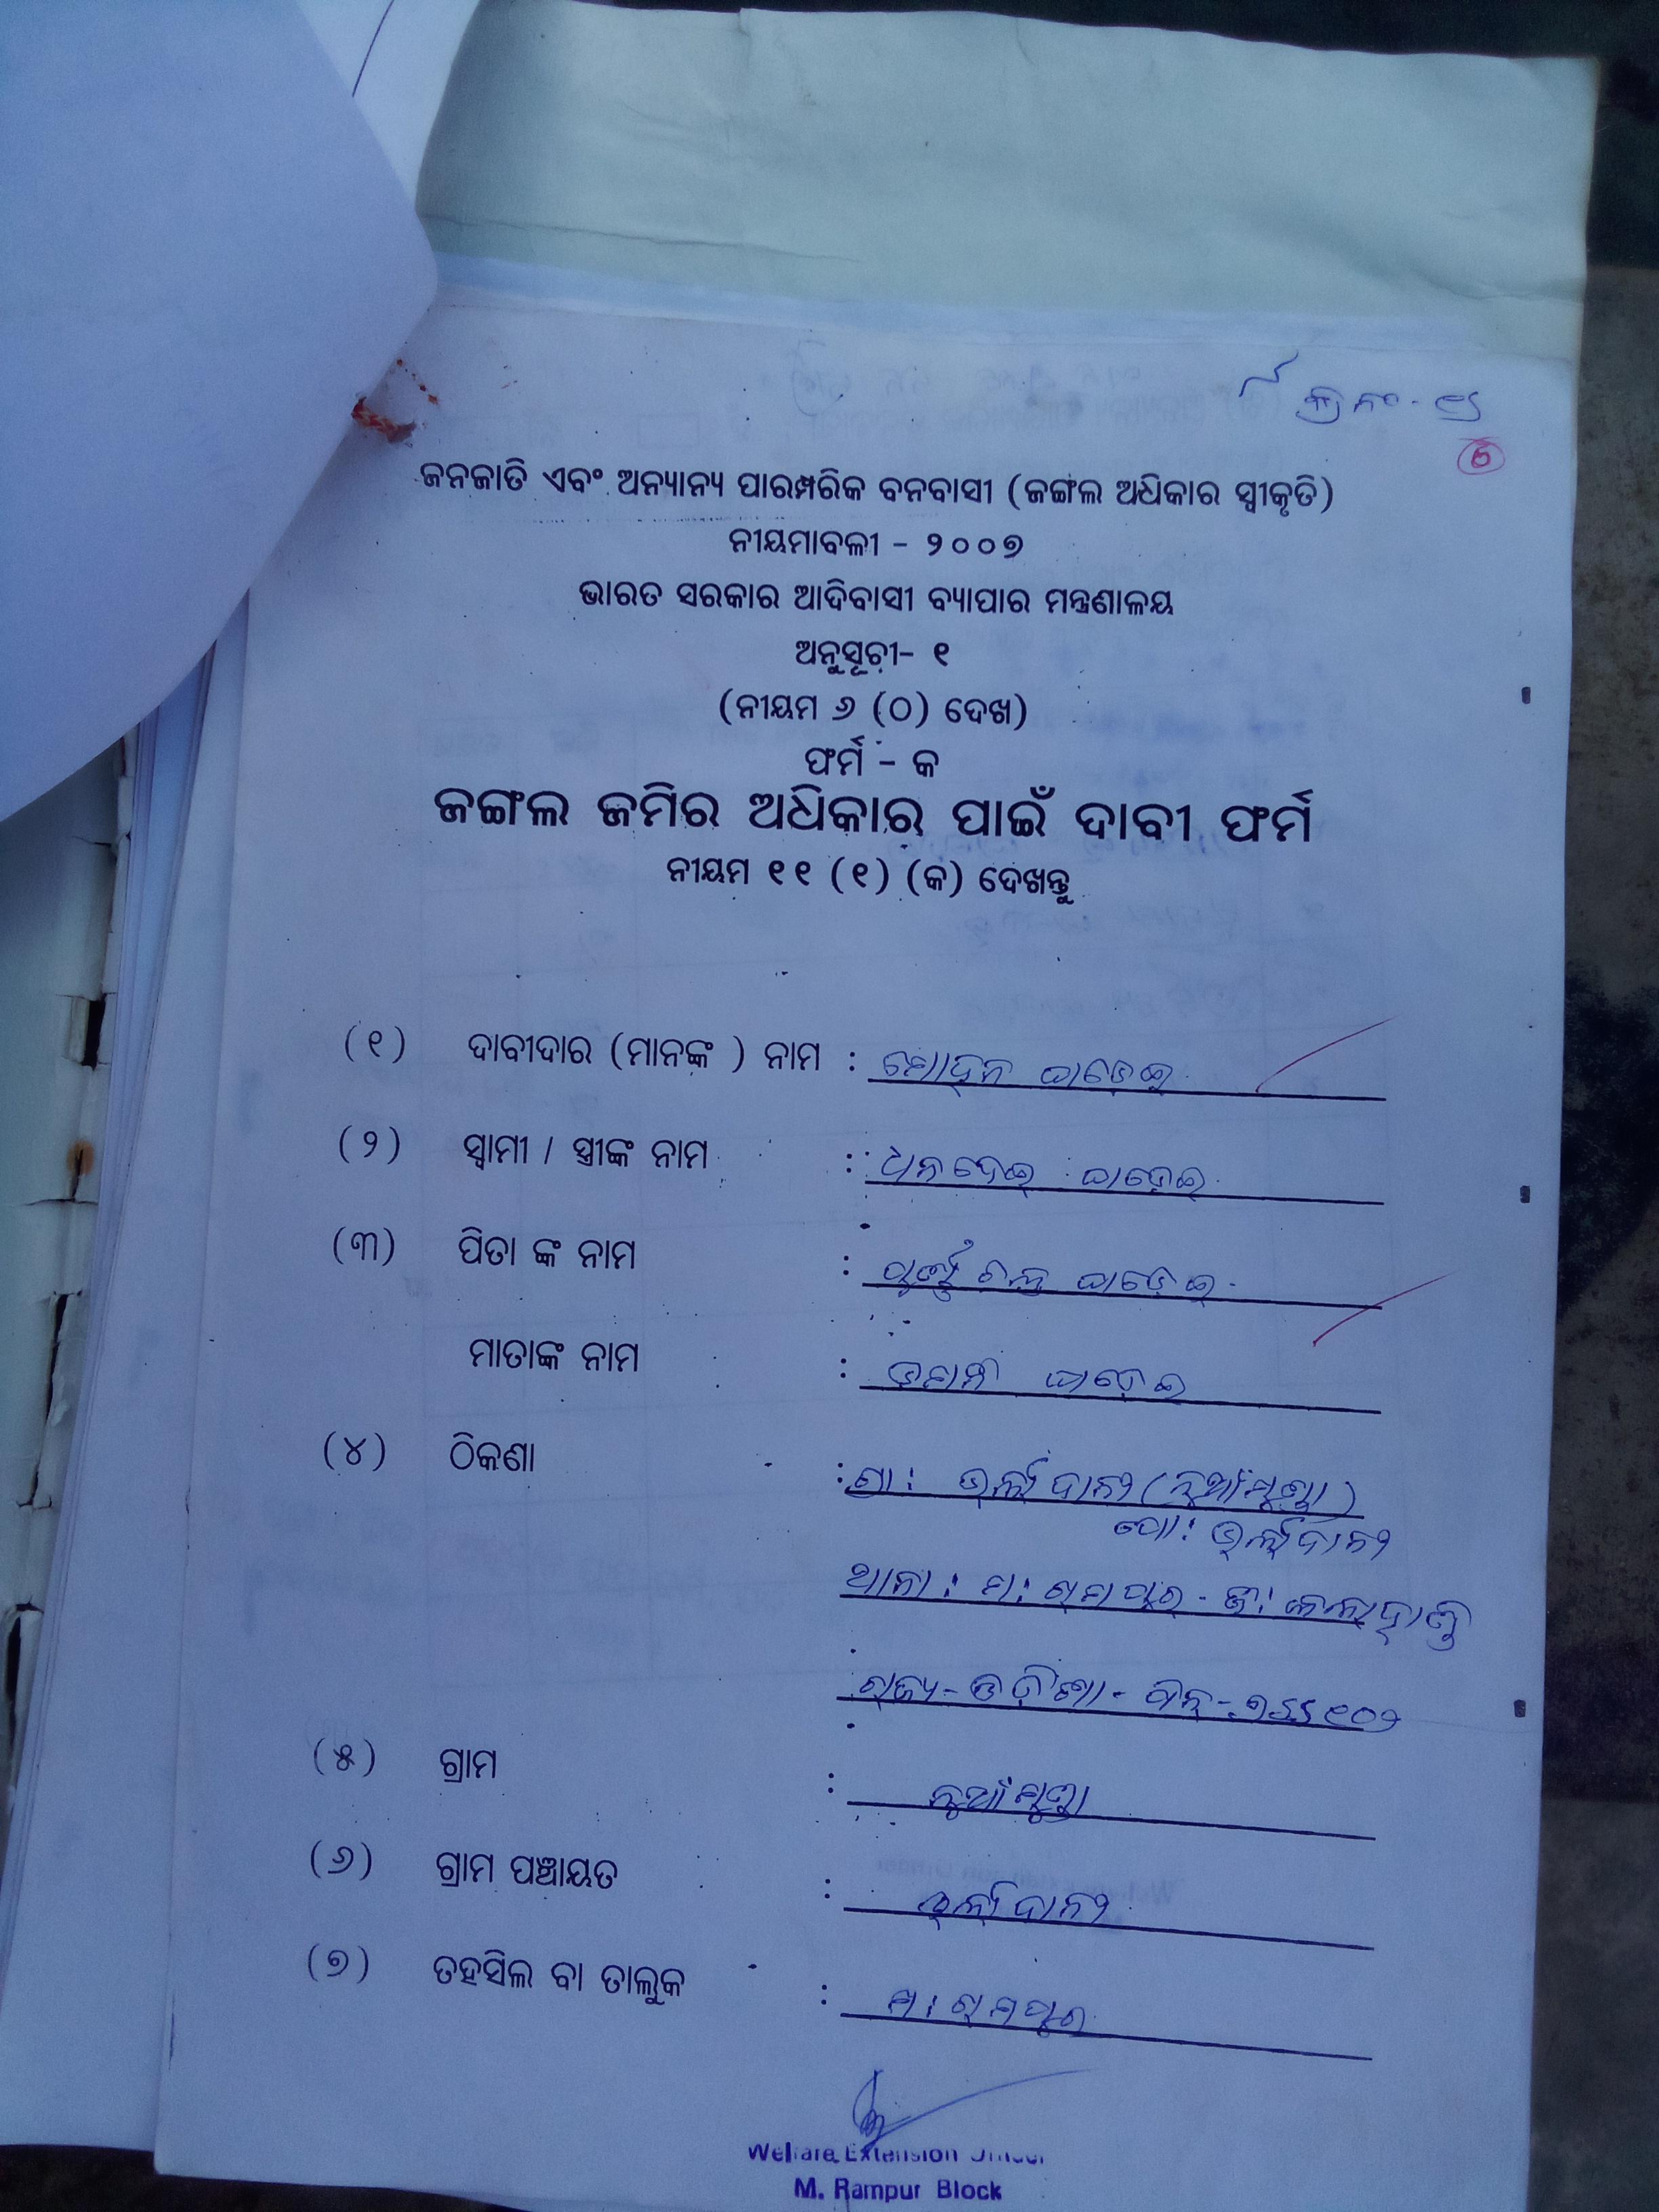 କ୍ର ନଂ - ୧୨
ଜନଜାତି ଏବଂ ଅନ୍ୟାନ୍ୟ ପାରମ୍ପରିକ ବନବାସୀ (ଜଙ୍ଗଲ ଅଧିକାର ସ୍ଵୀକୃତି)
ନୀୟମାବଳୀ - ୨୦୦୭
ଭାରତ ସରକାର ଆଦିବାସୀ ବ୍ୟାପାର ମନ୍ତ୍ରଣାଳୟ
ଅନୁସୂଚୀ- ୧
(ନୀୟମ ୬ (ଠ) ଦେଖ)
ଫର୍ମ - କ
ଜଙ୍ଗଲ ଜମିର ଅଧିକାର ପାଇଁ ଦାବୀ ଫର୍ମ
ନୀୟମ ୧୧ (୧) (କ) ଦେଖନ୍ତୁ
(୧) ଦାବୀଦାର (ମାନଙ୍କ ) ନାମ : ମୋହନ
(୨) ସ୍ଵାମୀ / ସ୍ତ୍ରୀଙ୍କ ନାମ : ଧନଦେଇ
(୩) ପିତା ଙ୍କ ନାମ :
ମାତାଙ୍କ ନାମ :
(୪) ଠିକଣା : ଗ୍ରା: (ନୁଆଁମୁଣ୍ଡା)
ପୋ:
ଥାନା: ମ: ରାମପୁର - ଜି: କଳାହାଣ୍ଡି
ରାଜ୍ୟ - ଓଡ଼ିଶା - ପିନ୍ -
(୫) ଗ୍ରାମ : ନୁଆଁମୁଣ୍ଡା
(୬) ଗ୍ରାମ ପଞ୍ଚାୟତ :
(୭) ତହସିଲ ବା ତାଲୁକ : ମ: ରାମପୁର
Welfare Extension Officer
M. Rampur Block